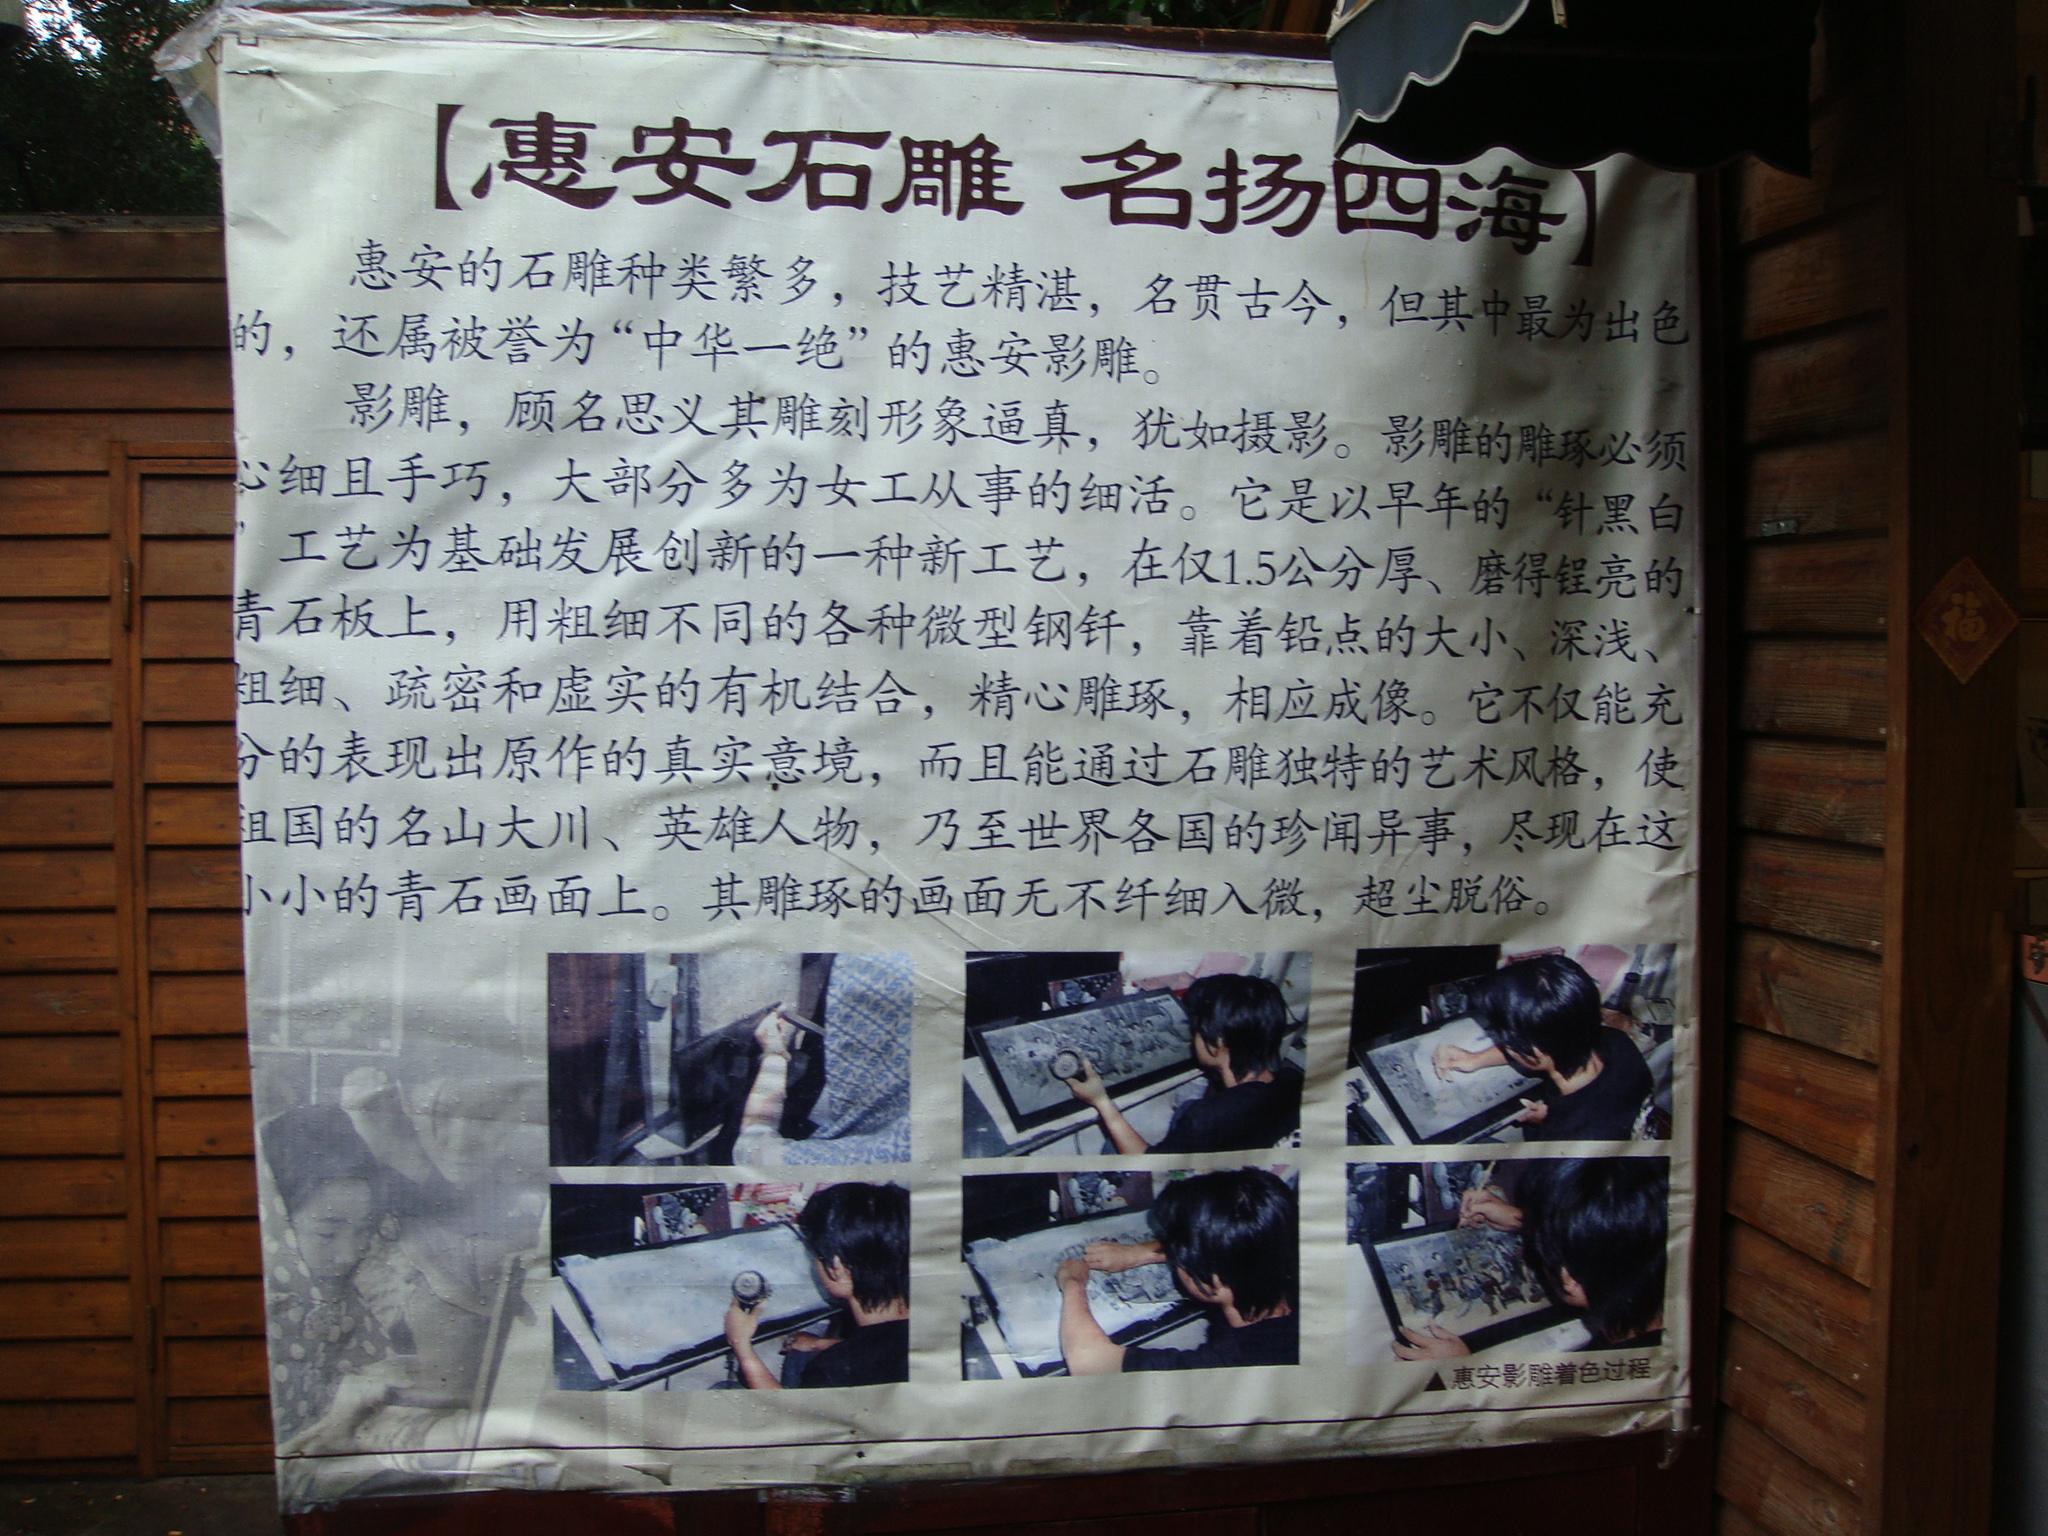 【惠安石雕 名扬四海】
惠安的石雕种类繁多，技艺精湛，名贯古今，但其中最为出色
的，还属被誉为“中华一绝”的惠安影雕。
影雕，顾名思义其雕刻形象逼真，犹如摄影。影雕的雕琢必须
心细且手巧，大部分多为女工从事的细活。它是以早年的“针黑白
”工艺为基础发展创新的一种新工艺，在仅1.5公分厚、磨得锃亮的
青石板上，用粗细不同的各种微型钢钎，靠着铅点的大小、深浅、
粗细、疏密和虚实的有机结合，精心雕琢，相应成像。它不仅能充
分的表现出原作的真实意境，而且能通过石雕独特的艺术风格，使
祖国的名山大川、英雄人物，乃至世界各国的珍闻异事，尽现在这
小小的青石画面上。其雕琢的画面无不纤细入微，超尘脱俗。
▲惠安影雕着色过程
福